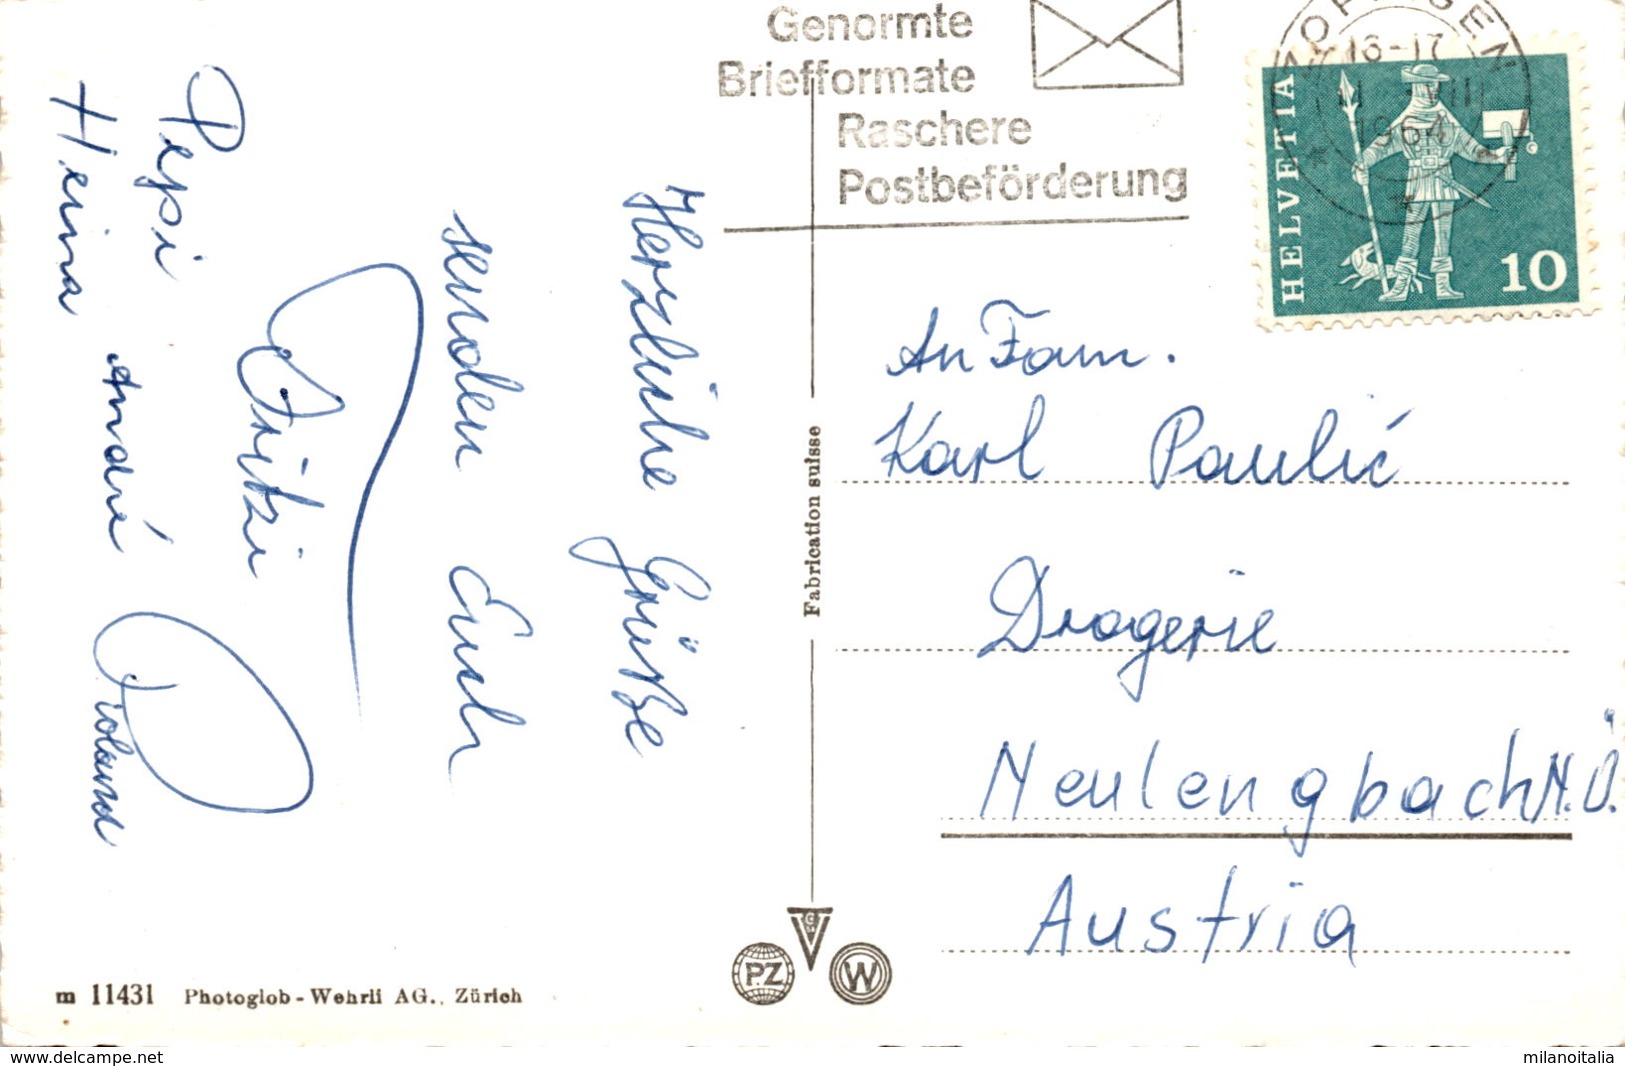 Genormte
Briefformate
Raschere
Postbeförderung
ZOFINGEN
16-17
VIII
1964
HELVETIA
10
Herzliche Grüße
senden Euch
Fritzi
Pepsi
Heina André Roland
An Fam.
Karl Paulić
Drogerie
Neulengbach N.Ö.
Austria
Fabrication suisse
PZ
W
m 11431 Photoglob-Wehrli AG., Zürich
www.delcampe.net
milanoitalia